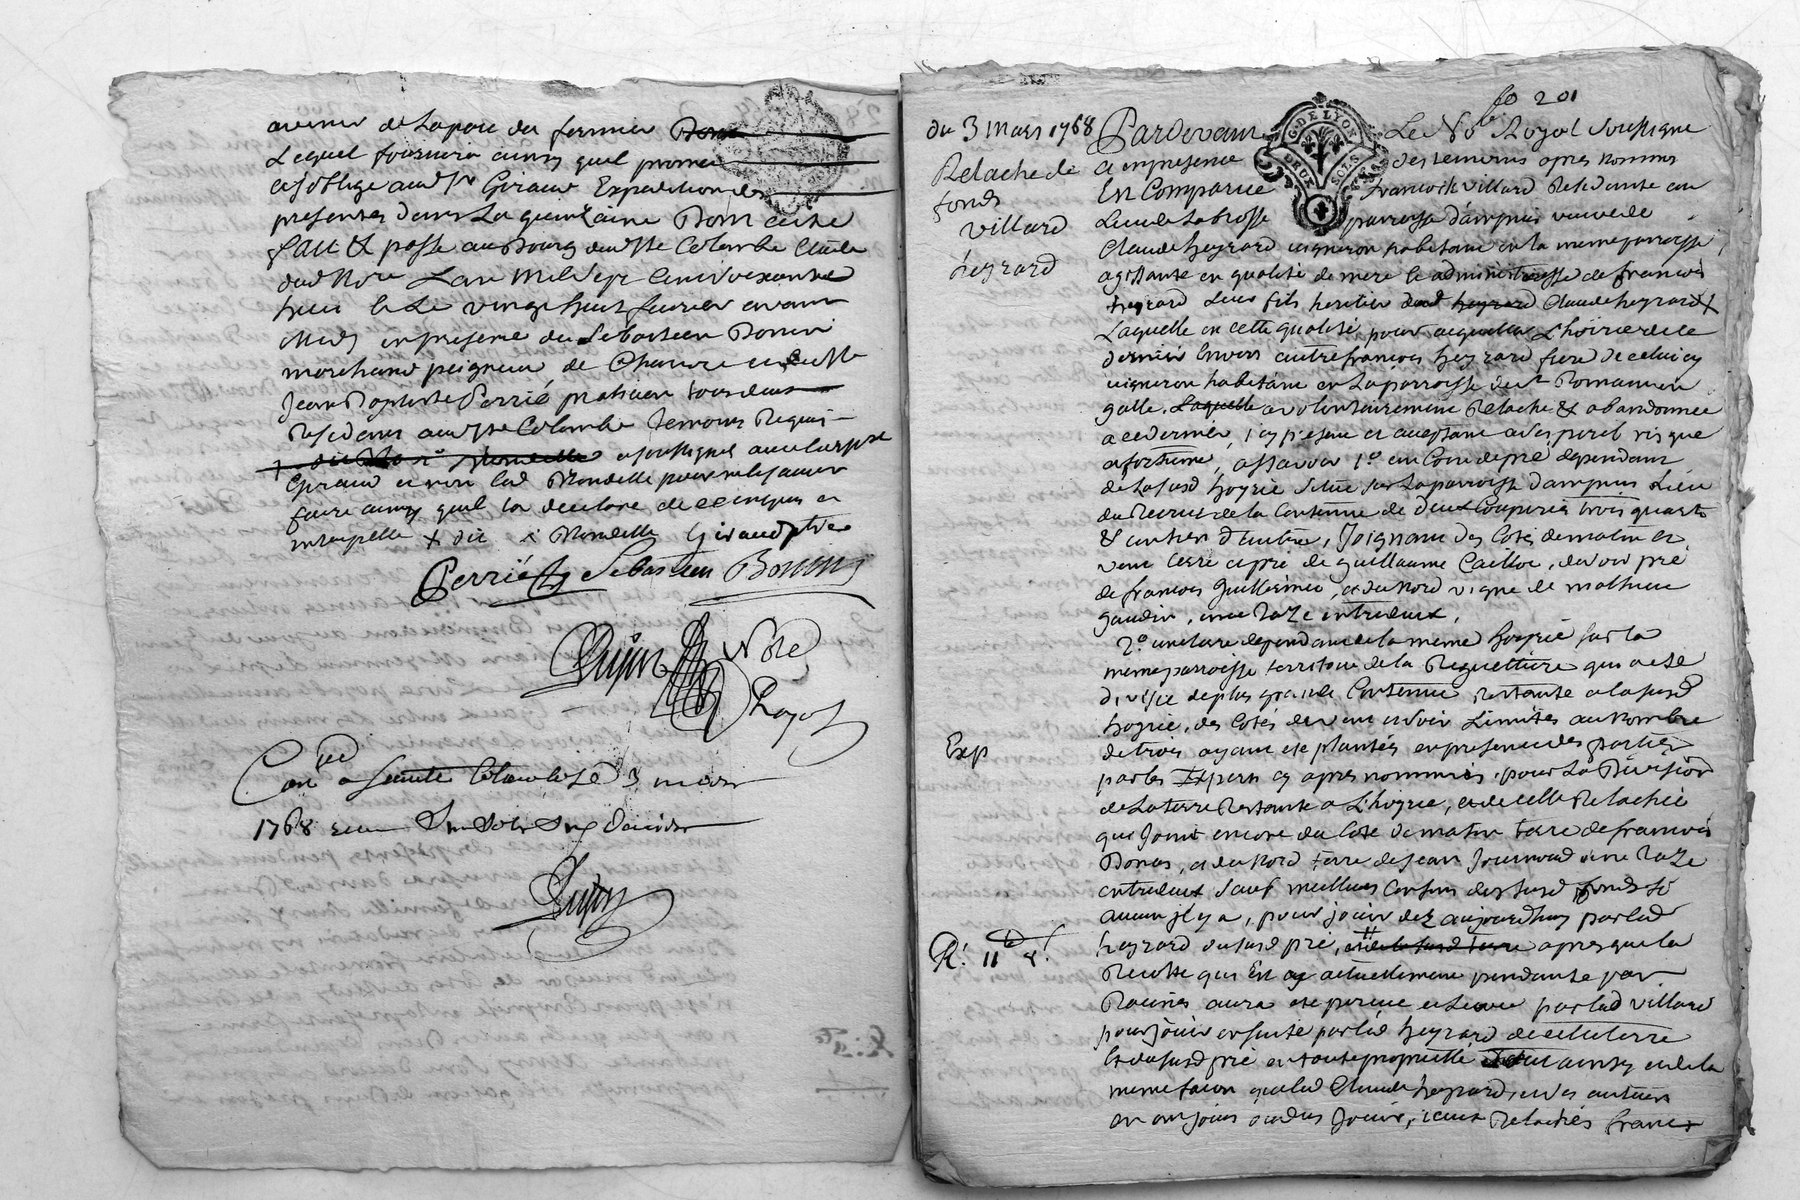 avenir de la part du fermier
Lequel fournira ainsy quil promet
et s'oblige aud sr Giraud Expedition des
presentes dans La quinzaine Dont acte
fait & passé au Bourg de Ste Colombe Etude
dud Nore Lan Mil Sept Cent Soixante
huit le Le vingt huit fevrier avant
Midy en presence de Sebastien Bonin
marchand peigneur de Chanvre et de Me
Jean Baptiste Perrié praticien tous deux
Residants aud Ste Colombe Temoins Requis
a soussignés avec led sr
Giraud et non led Mondelle pour ne le scavoir
faire ainsy quil la declaré de ce enquis et
interpellé X dit Giraud ptre
Perrié Sebastien Bonin
Dujon Nore
Royol
Con lé a Sainte Colombe Le 3 mars
1768 recu
Dujon
fo 201
du 3 Mars 1768
Relache de
fonds
villard
heyrard
Exp
R. 11
Pardevant Le Nore Royal Soussigné
G. DE LYON
DEUX SOLS
et en presence des temoins apres nommés
En Comparue francoise villard Residante au
Lieu de La brosse parroisse d'ampuis veuve de
Claude heyrard vigneron habitant en la meme parroisse
agissante en qualité de mere et administresse de francois
heyrard Leur fils heritier dud heyrard Claude heyrard X
Laquelle en cette qualité, pour acquitter L'hoirie de ce
dernier Envers autre francois heyrard frere de celuicy
vigneron habitant en La parroisse de st Romain en
galle, Laquelle a volontairement Relaché & abandonné
a ce dernier, icy present et acceptant a ses peril risque
et fortune, assavoir 1o. un Coin de pré dependant
de La susd hoyrie Situé sur La parroisse dampuis Lieu
du Recrut de la Contenue de deux Couperies trois quarts
& un tiers d'autre, Joignant des Cotés de matin et
vent terre et pré de guillaume Caillot, de soir pré
de francois Guillermin, et de Nord vigne de mathieu
gaudin, une Raze entredeux.
2o. une terre dependante de la meme hoyrie sur la
meme parroisse territoire de la Roquettiere qui a eté
divisée de plus grande Contenue restante a la susd
hoyrie, des Cotés de vent et soir Limites au Nombre
de trois ayant eté plantées en presence des parties
par les Experts cy apres nommés, pour La Division
de La terre Restante a L'hoyrie, et de celle Relachée
qui Joint encore du Coté de matin terre de francois
Bonas, et du Nord terre de Jean Journoud une Raze
entredeux Sauf meilleurs Confins des susd fonds si
aucun il y a, pour jouir dez aujourdhuy par led
heyrard du susd pré, et de la susd terre apres que la
Recolte qui Est actuellement pendante par
Racines aura eté percue et Levée par lad villard
pour jouir ensuite par led heyrard de cete terre
et du susd pré en toute proprieté et tout ainsy et de la
meme facon que led Claude heyrard, et ses auteurs
en ont joui ou du Jouir, iceux Relachés francs